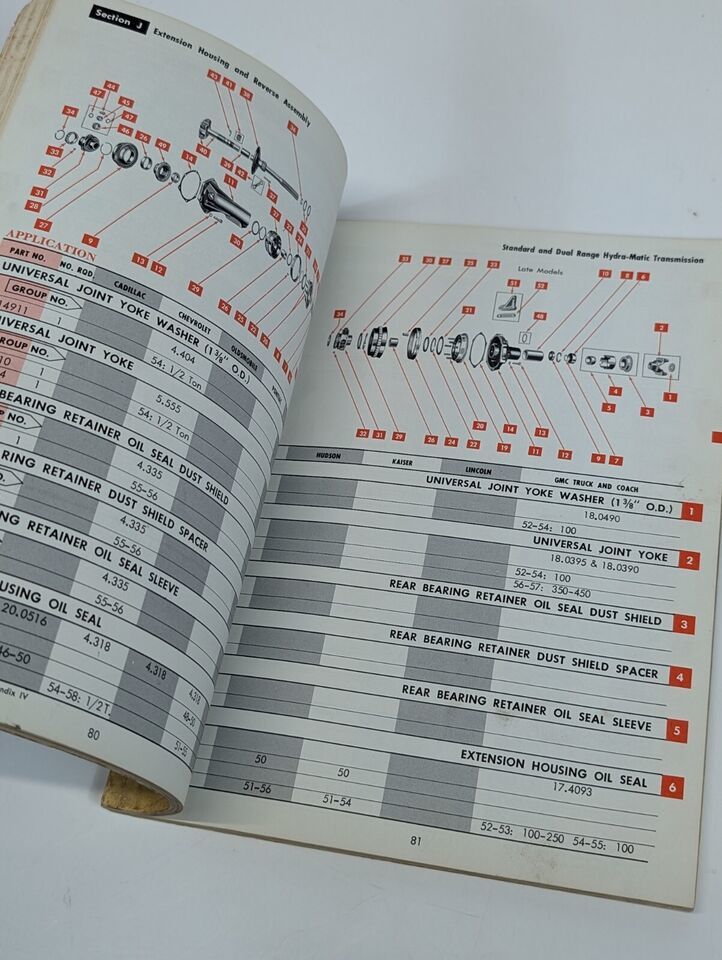 Section J Extension Housing and Reverse Assembly
43 41 38
44
47 45
47
34 46 26 49 14
35
40 39 42
33
32
31
28
27
9
13 12
11
30
29
APPLICATION
PART NO. NO. RQD. CADILLAC CHEVROLET OLDSMOBILE PONTIAC
UNIVERSAL JOINT YOKE WASHER (1 3/8" O.D.)
GROUP NO. 4.404
14911 1 54: 1/2 Ton
UNIVERSAL JOINT YOKE
GROUP NO. 5.555
10 1 54: 1/2 Ton
4 1
BEARING RETAINER OIL SEAL DUST SHIELD
P NO. 4.335
1 55-56
RING RETAINER DUST SHIELD SPACER
4.335
55-56
NG RETAINER OIL SEAL SLEEVE
4.335
55-56
USING OIL SEAL
20.0516 4.318 4.318 4.318
46-50 48-50
54-58: 1/2T. 51-55
ndix IV
80
Standard and Dual Range Hydra-Matic Transmission
Late Models
33 30 27 25 23 10 8 6
51 52
34 21 48 2
4 5 3 1
32 31 29 26 24 22 20 14 19 13 11 12 9 7
HUDSON KAISER LINCOLN GMC TRUCK AND COACH
UNIVERSAL JOINT YOKE WASHER (1 3/8" O.D.) 1
18.0490
52-54: 100
UNIVERSAL JOINT YOKE 2
18.0395 & 18.0390
52-54: 100
56-57: 350-450
REAR BEARING RETAINER OIL SEAL DUST SHIELD 3
REAR BEARING RETAINER DUST SHIELD SPACER 4
REAR BEARING RETAINER OIL SEAL SLEEVE 5
EXTENSION HOUSING OIL SEAL 6
50 50 17.4093
51-56 51-54
52-53: 100-250 54-55: 100
81